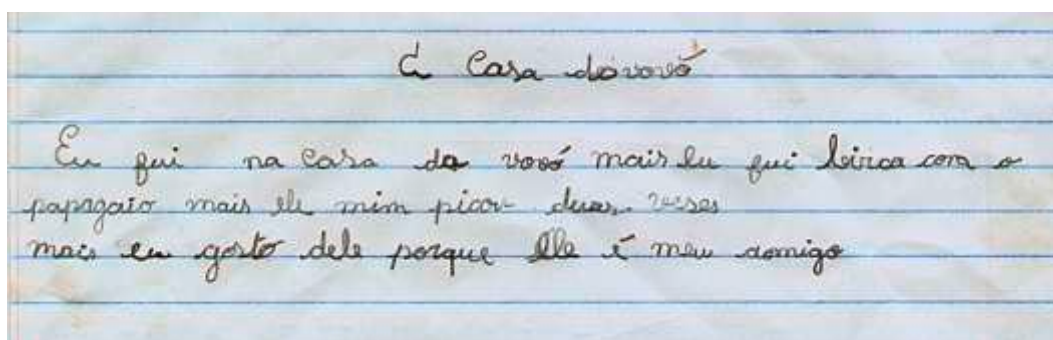 A Casa da vovó
Eu fui na casa da vovó mais eu fui birca com o
papagaio mais ele mim picou duas veses
mais eu gosto dele porque ele é meu amigo